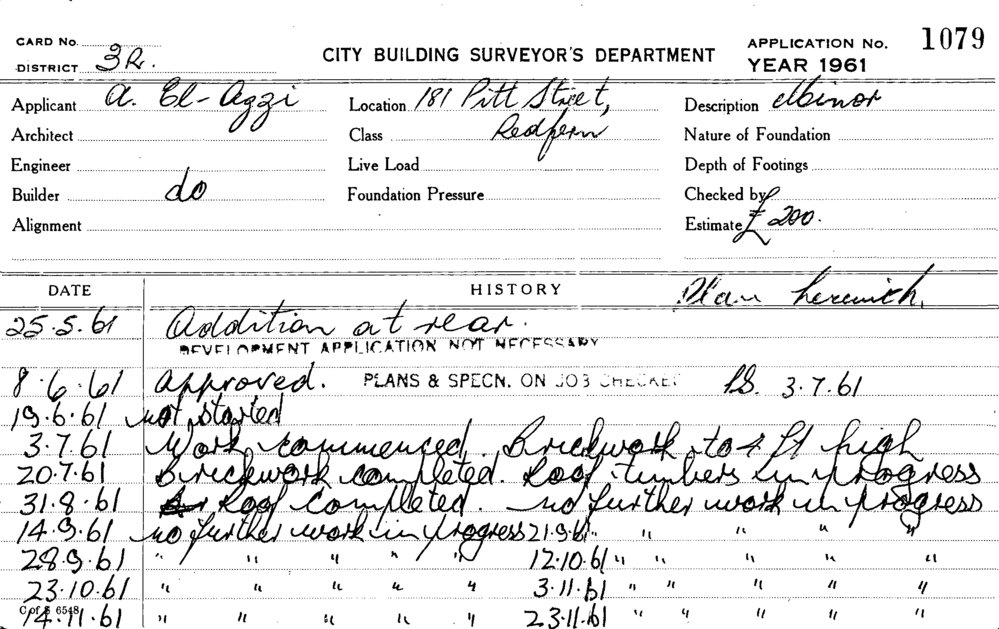 CARD No.
DISTRICT 3R.
CITY BUILDING SURVEYOR'S DEPARTMENT
APPLICATION No. 1079
YEAR 1961
Applicant A. El-Azzi Location 181 Pitt Street, Description Minor
Architect Class Redfern Nature of Foundation
Engineer Live Load Depth of Footings
Builder do Foundation Pressure Checked by
Alignment Estimate £ 200.
DATE HISTORY Plan herewith.
25.5.61 Addition at rear.
DEVELOPMENT APPLICATION NOT NECESSARY
8.6.61 Approved. PLANS & SPECN. ON JOB CHECKED 3.7.61
19.6.61 not started
3.7.61 Work commenced. Brickwork to 4 ft high
20.7.61 Brickwork completed. Roof timbers in progress
31.8.61 Roof completed. no further work in progress
14.9.61 no further work in progress 21.9.61 " " " "
28.9.61 " " " " " 12.10.61 " " " " " "
23.10.61 " " " " " 3.11.61 " " " " "
14.11.61 " " " " " 23.11.61 " " " " "
C of S 6548